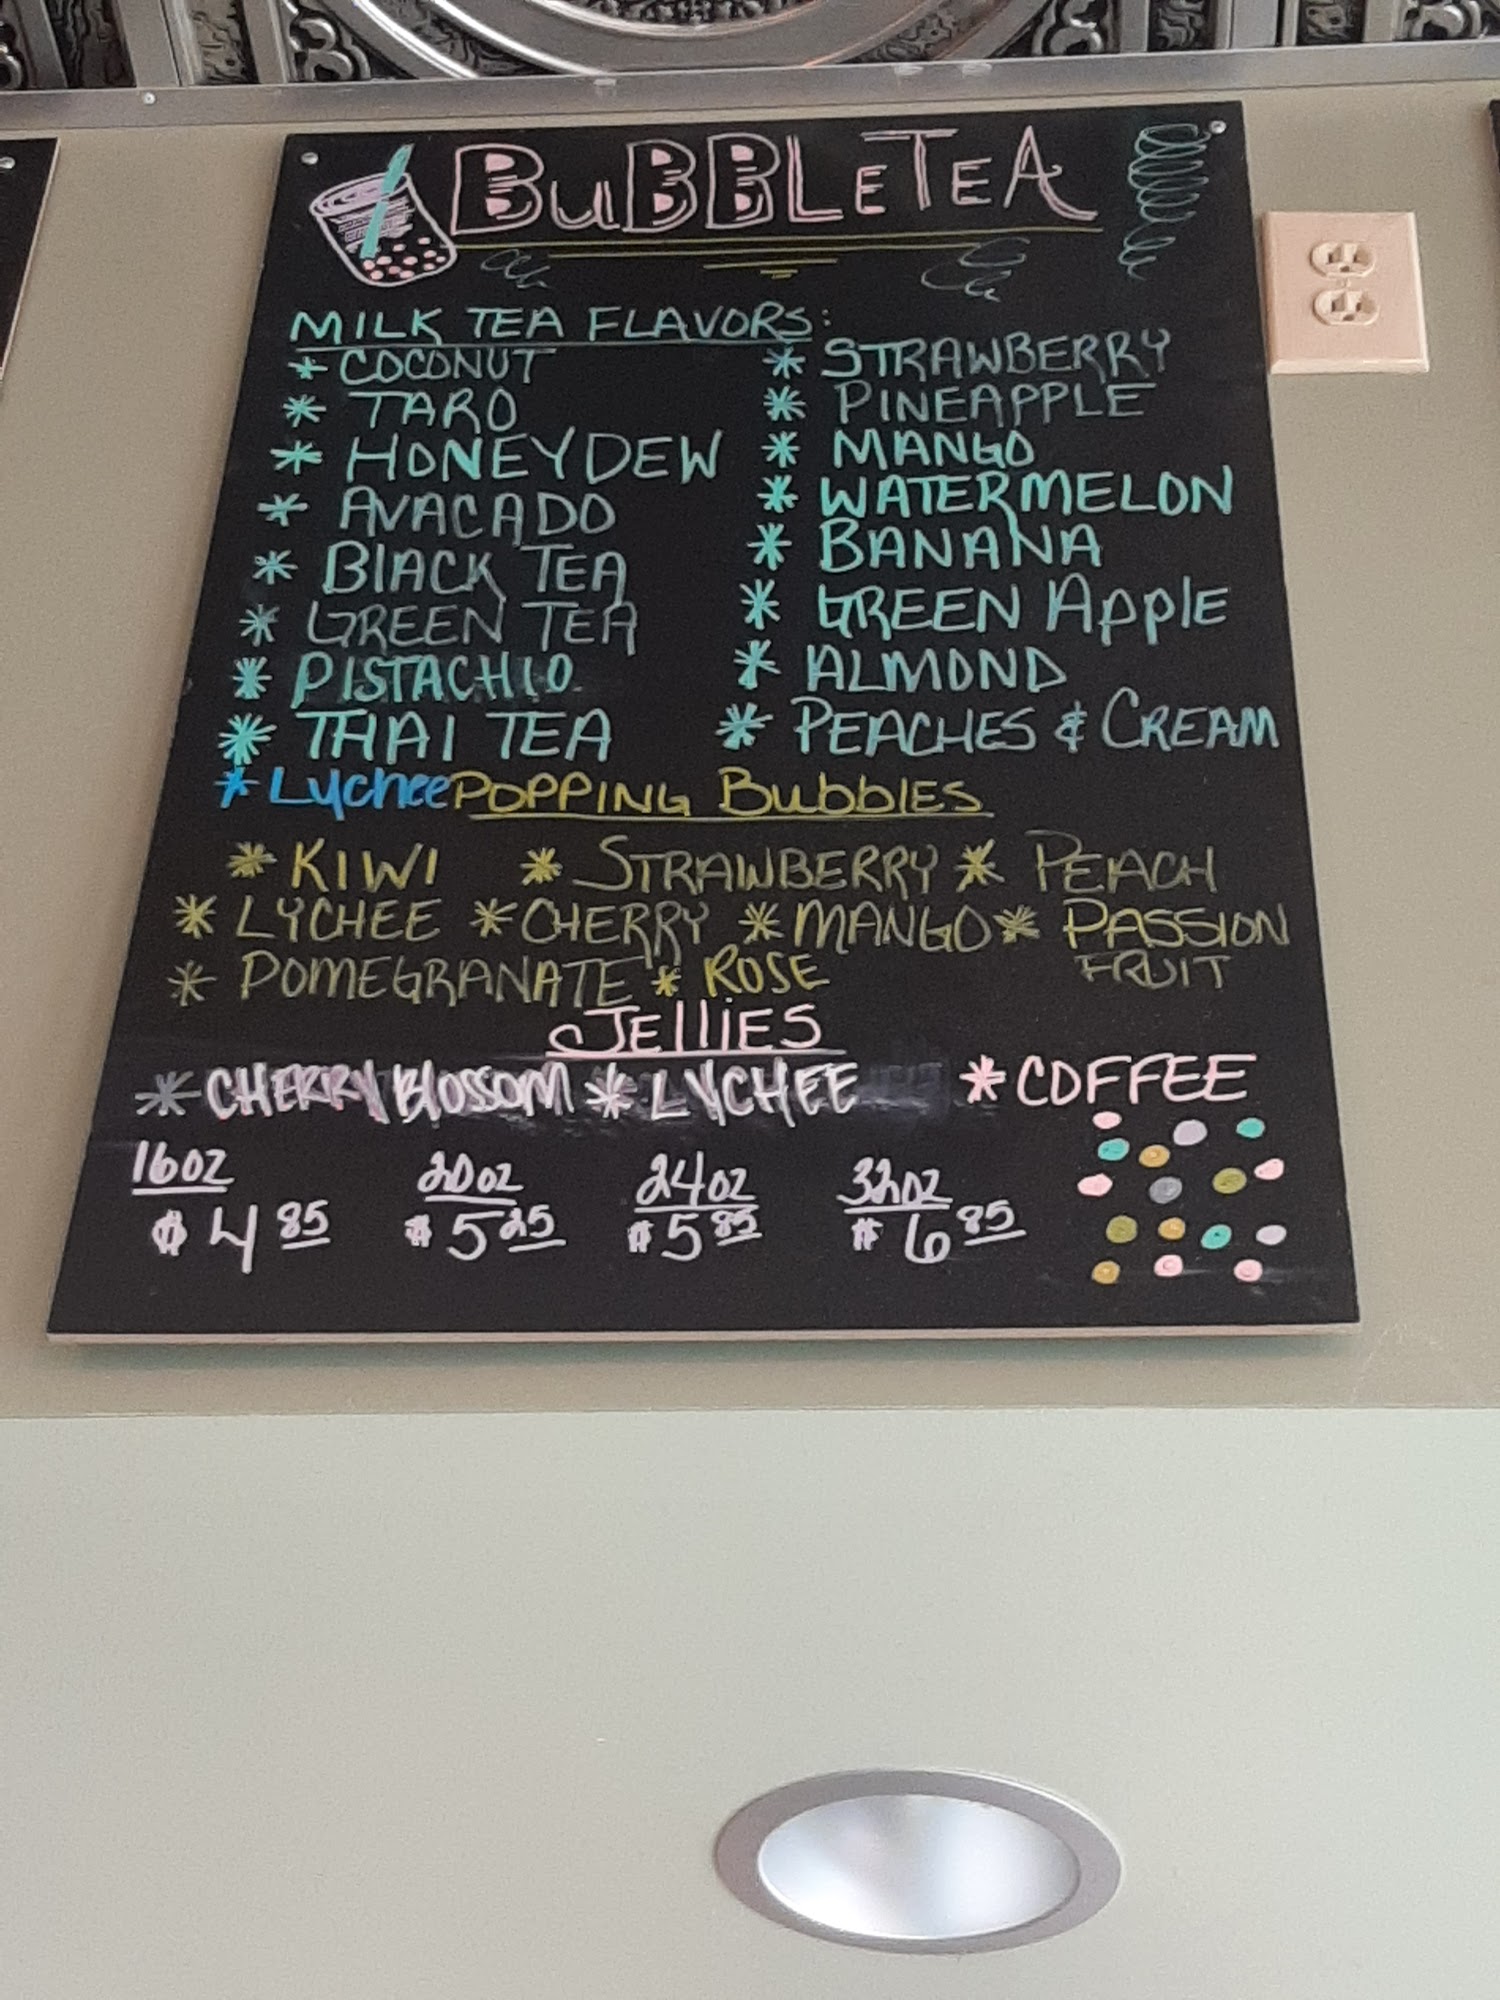 BuBBLeTEA
MILK TEA FLAVORS:
* COCONUT
* TARO
* HONEYDEW
* AVACADO
* BlACK TEA
* GREEN TEA
* PISTACHIO
* THAI TEA
* Lychee
* STRAWBERRY
* PINEAPPLE
* MANGO
* WATERMELON
* BANANA
* GREEN Apple
* ALMOND
* PEACHES & CREAM
POPPING BubblES
* KIWI * STRAWBERRY * PEACH
* LYCHEE * CHERRY * MANGO * PASSION FRUIT
* POMEGRANATE * ROSE
JEllIES
* CHERRY BlOSSOM * LYCHEE * COFFEE
16oz 20oz 24oz 32oz
$4 85 $5 25 $5 85 $6 85